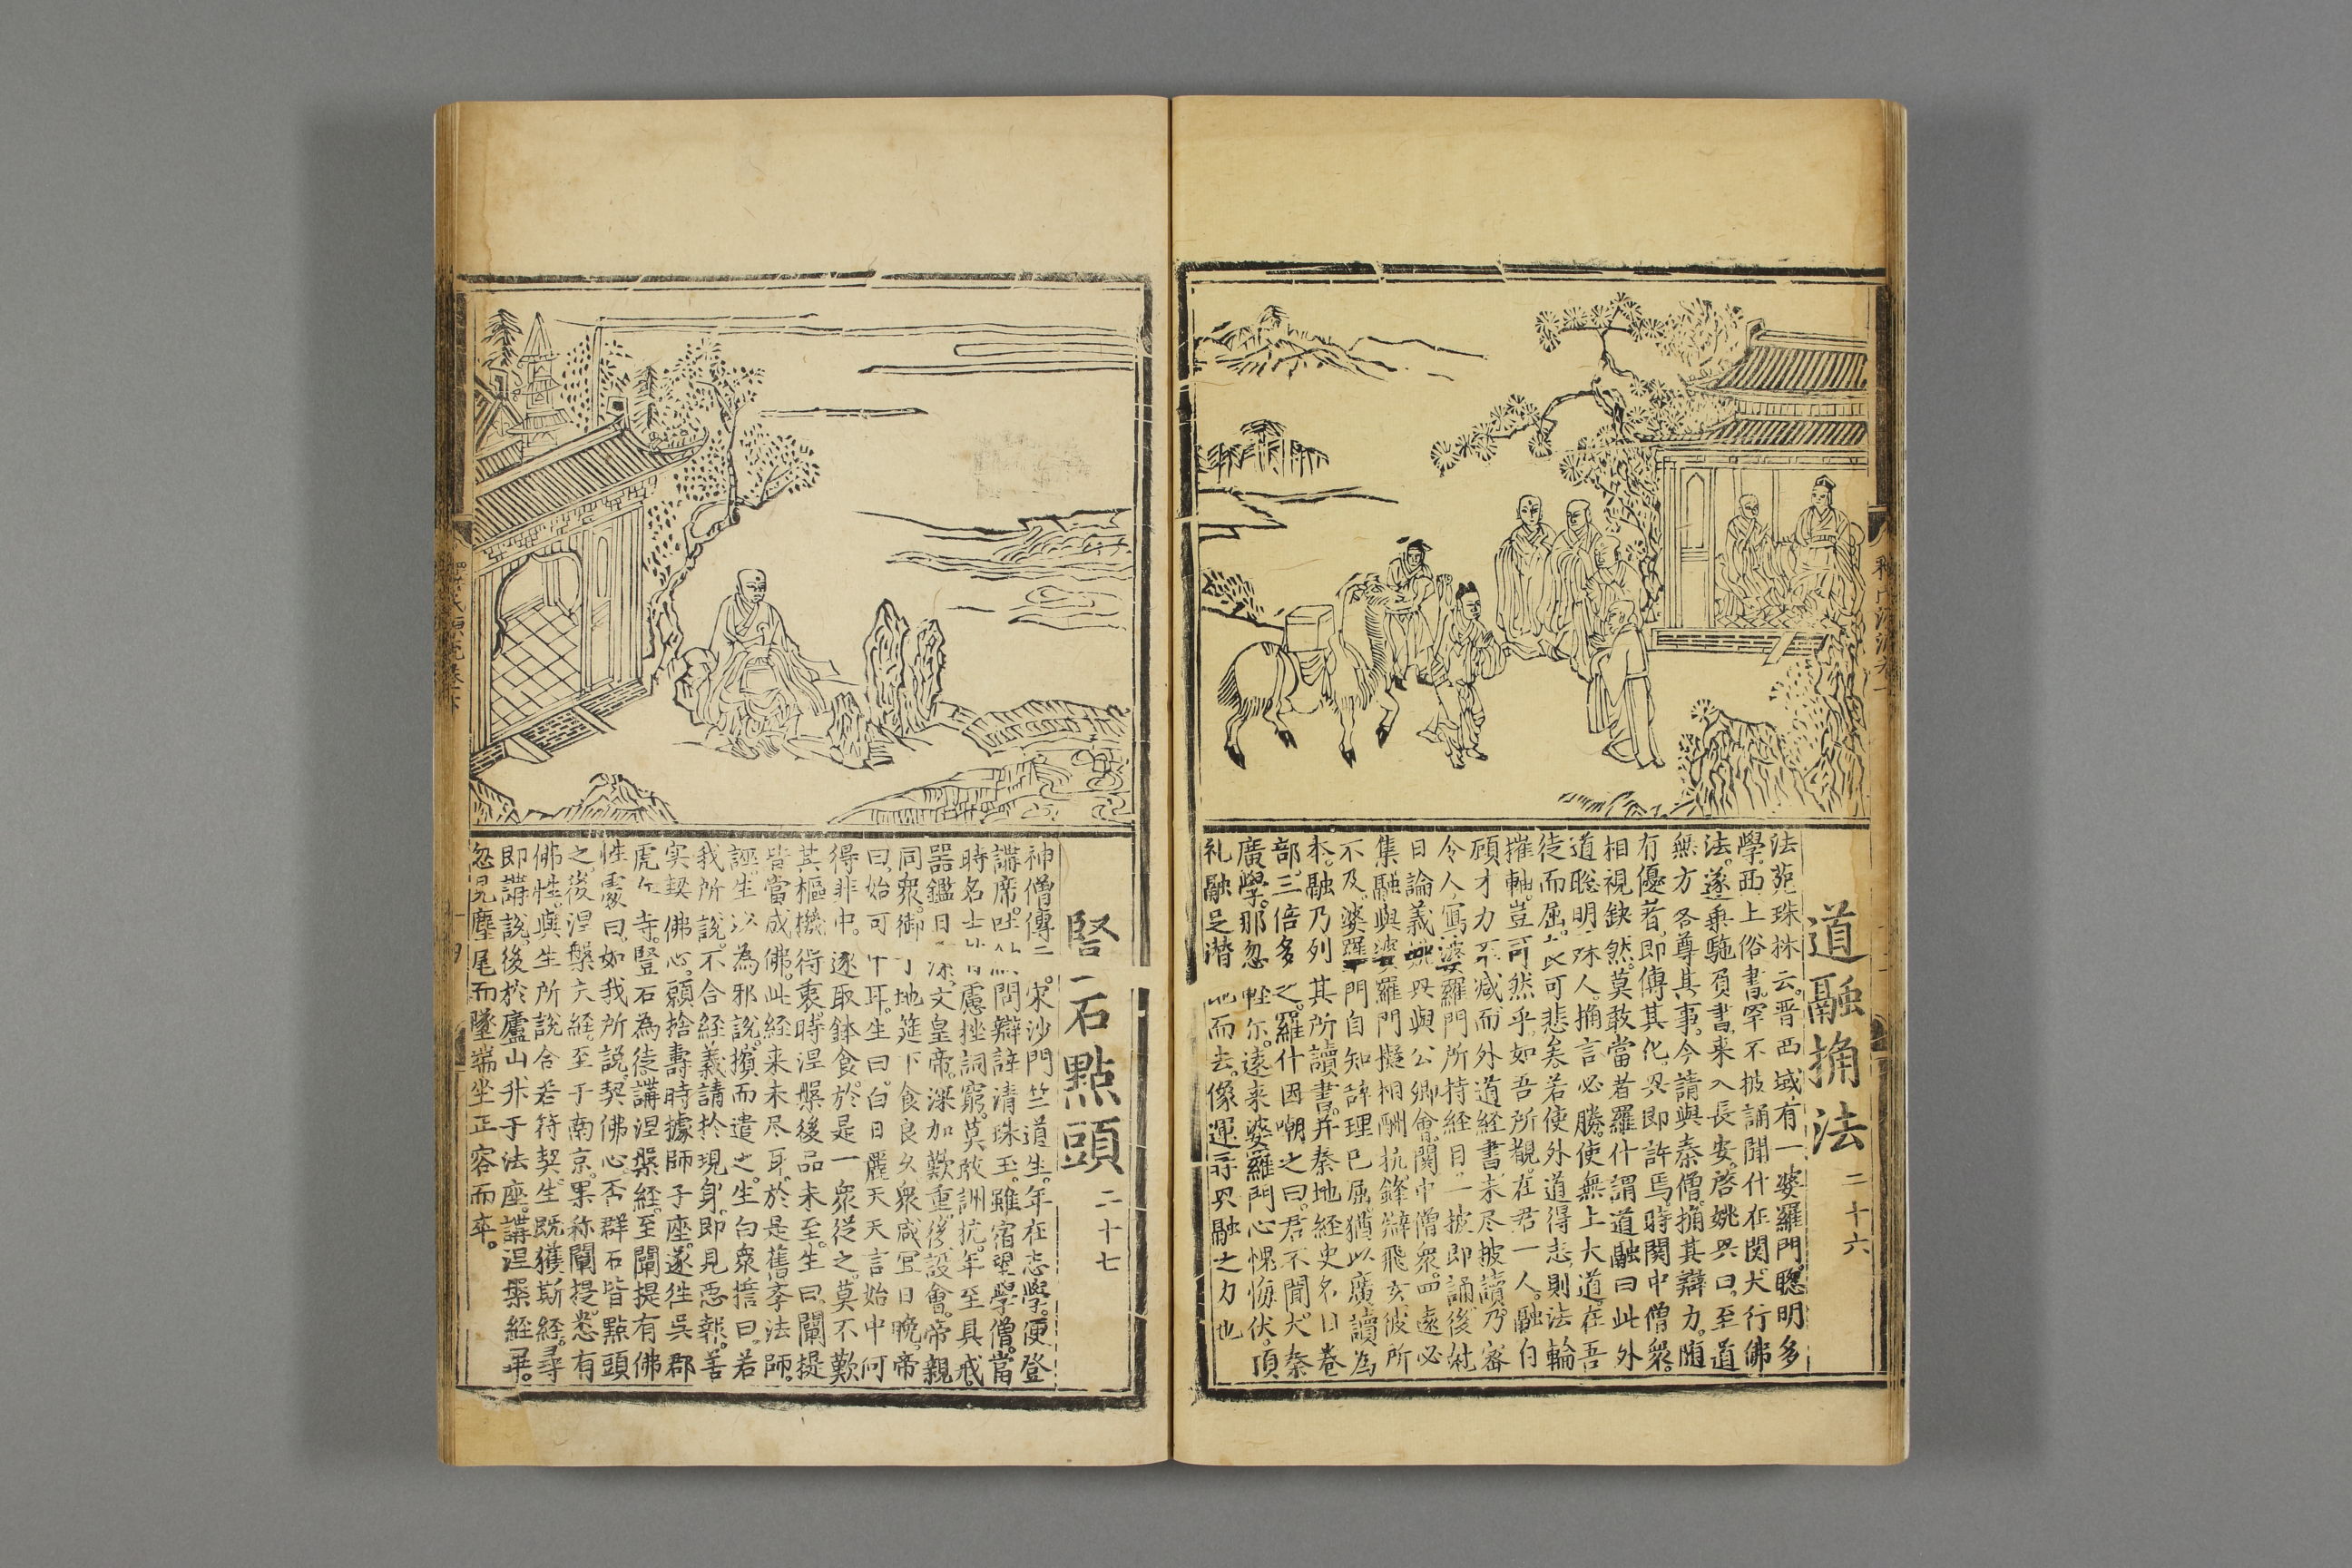 道融捔法 二十六
法苑珠林云晋西域有一婆羅門聰明多
學西上俗書罕不披誦聞什在関大行佛
法遂乗駞負書来入長安啓姚㒷曰至道
無方各尊其事今請與秦僧捔其辯力隨
有優著即傳其化㒷即許焉時関中僧衆
相視鈌然莫敢當者羅什謂道融曰此外
道聡明殊人捔言必勝使無上大道在吾
徒而屈良可悲矣若使外道得志則法輪
摧軸豈可然乎如吾所覩在君一人融自
顧才力不减而外道経書未尽披讀乃審
令人寫婆羅門所持経目一披即誦後尅
日論義姚㒷與公卿會関中僧衆四遠必
集融與婆羅門擬相酬抗鋒辯飛玄彼所
不及婆羅門自知辞理已屈猶以廣讀為
本融乃列其所讀書并秦地経史名目卷
部三倍多之羅什因嘲之曰君不聞大秦
廣學那忽軽尔遠来婆羅門心愧悔伏頂
礼融足潜 而去像運再㒷融之力也
竪石點頭 二十七
神僧傳云宋沙門竺道生年在志學便登
講席吐納問辯辞清珠玉雖宿望學僧當
時名士 慮挫詞窮莫敢訓抗年至具戒
器鑑日深文皇帝深加歎重後設會帝親
同衆御于地筵下食良久衆咸疑日晚帝
曰始可中耳生曰白日麗天天言始中何
得非中遂取鉢食於是一衆従之莫不歎
其樞機得衷時涅槃後品未至生曰闡提
皆當成佛此経来未尽耳於是舊斈法師
誣生以為邪說擯而遣之生白衆誓曰若
我所說不合経義請於現身即見惡報若
実契佛心願捨壽時據師子座遂徃吳郡
虎丘寺竪石為徒講涅槃経至闡提有佛
性䖏曰如我所說契佛心否群石皆點頭
之後涅槃大経至于南京果称闡提悉有
佛性與生所說合若符契生既獲斯経尋
即講說後於廬山升于法座講涅槃経畢
忽見麈尾而墜端坐正容而卒